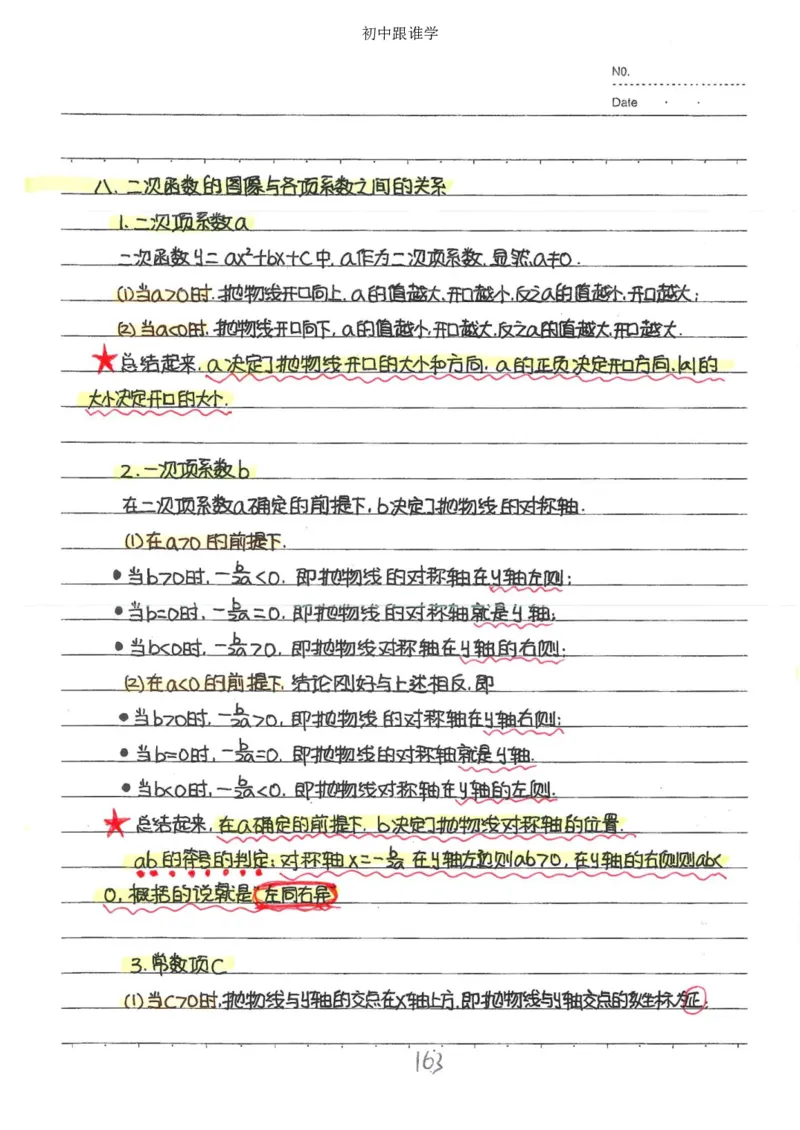 初中跟谁学
N0.
Date · ·
八.二次函数的图像与各项系数之间的关系
1.二次项系数a
二次函数y=ax²+bx+c中,a作为二次项系数,显然a≠0.
(1)当a>0时,抛物线开口向上,a的值越大,开口越小,反之a的值越小,开口越大;
(2)当a<0时,抛物线开口向下,a的值越小,开口越大,反之a的值越大,开口越大.
★总结起来,a决定了抛物线开口的大小和方向,a的正负决定开口方向,|a|的
大小决定开口的大小.
2.一次项系数b
在二次项系数a确定的前提下,b决定了抛物线的对称轴.
(1)在a>0的前提下.
•当b>0时,-b/2a<0,即抛物线的对称轴在y轴左侧;
•当b=0时,-b/2a=0,即抛物线的对称轴就是y轴;
•当b<0时,-b/2a>0,即抛物线对称轴在y轴的右侧;
(2)在a<0的前提下,结论刚好与上述相反,即
•当b>0时,-b/2a>0,即抛物线的对称轴在y轴右侧;
•当b=0时,-b/2a=0,即抛物线的对称轴就是y轴.
•当b<0时,-b/2a<0,即抛物线对称轴在y轴的左侧.
★总结起来,在a确定的前提下,b决定了抛物线对称轴的位置.
ab的符号的判定:对称轴x=-b/2a在y轴左边则ab>0,在y轴的右侧则ab<
0,概括的说就是"左同右异"
3.常数项c
(1)当c>0时,抛物线与y轴的交点在x轴上方,即抛物线与y轴交点的纵坐标为正;
163